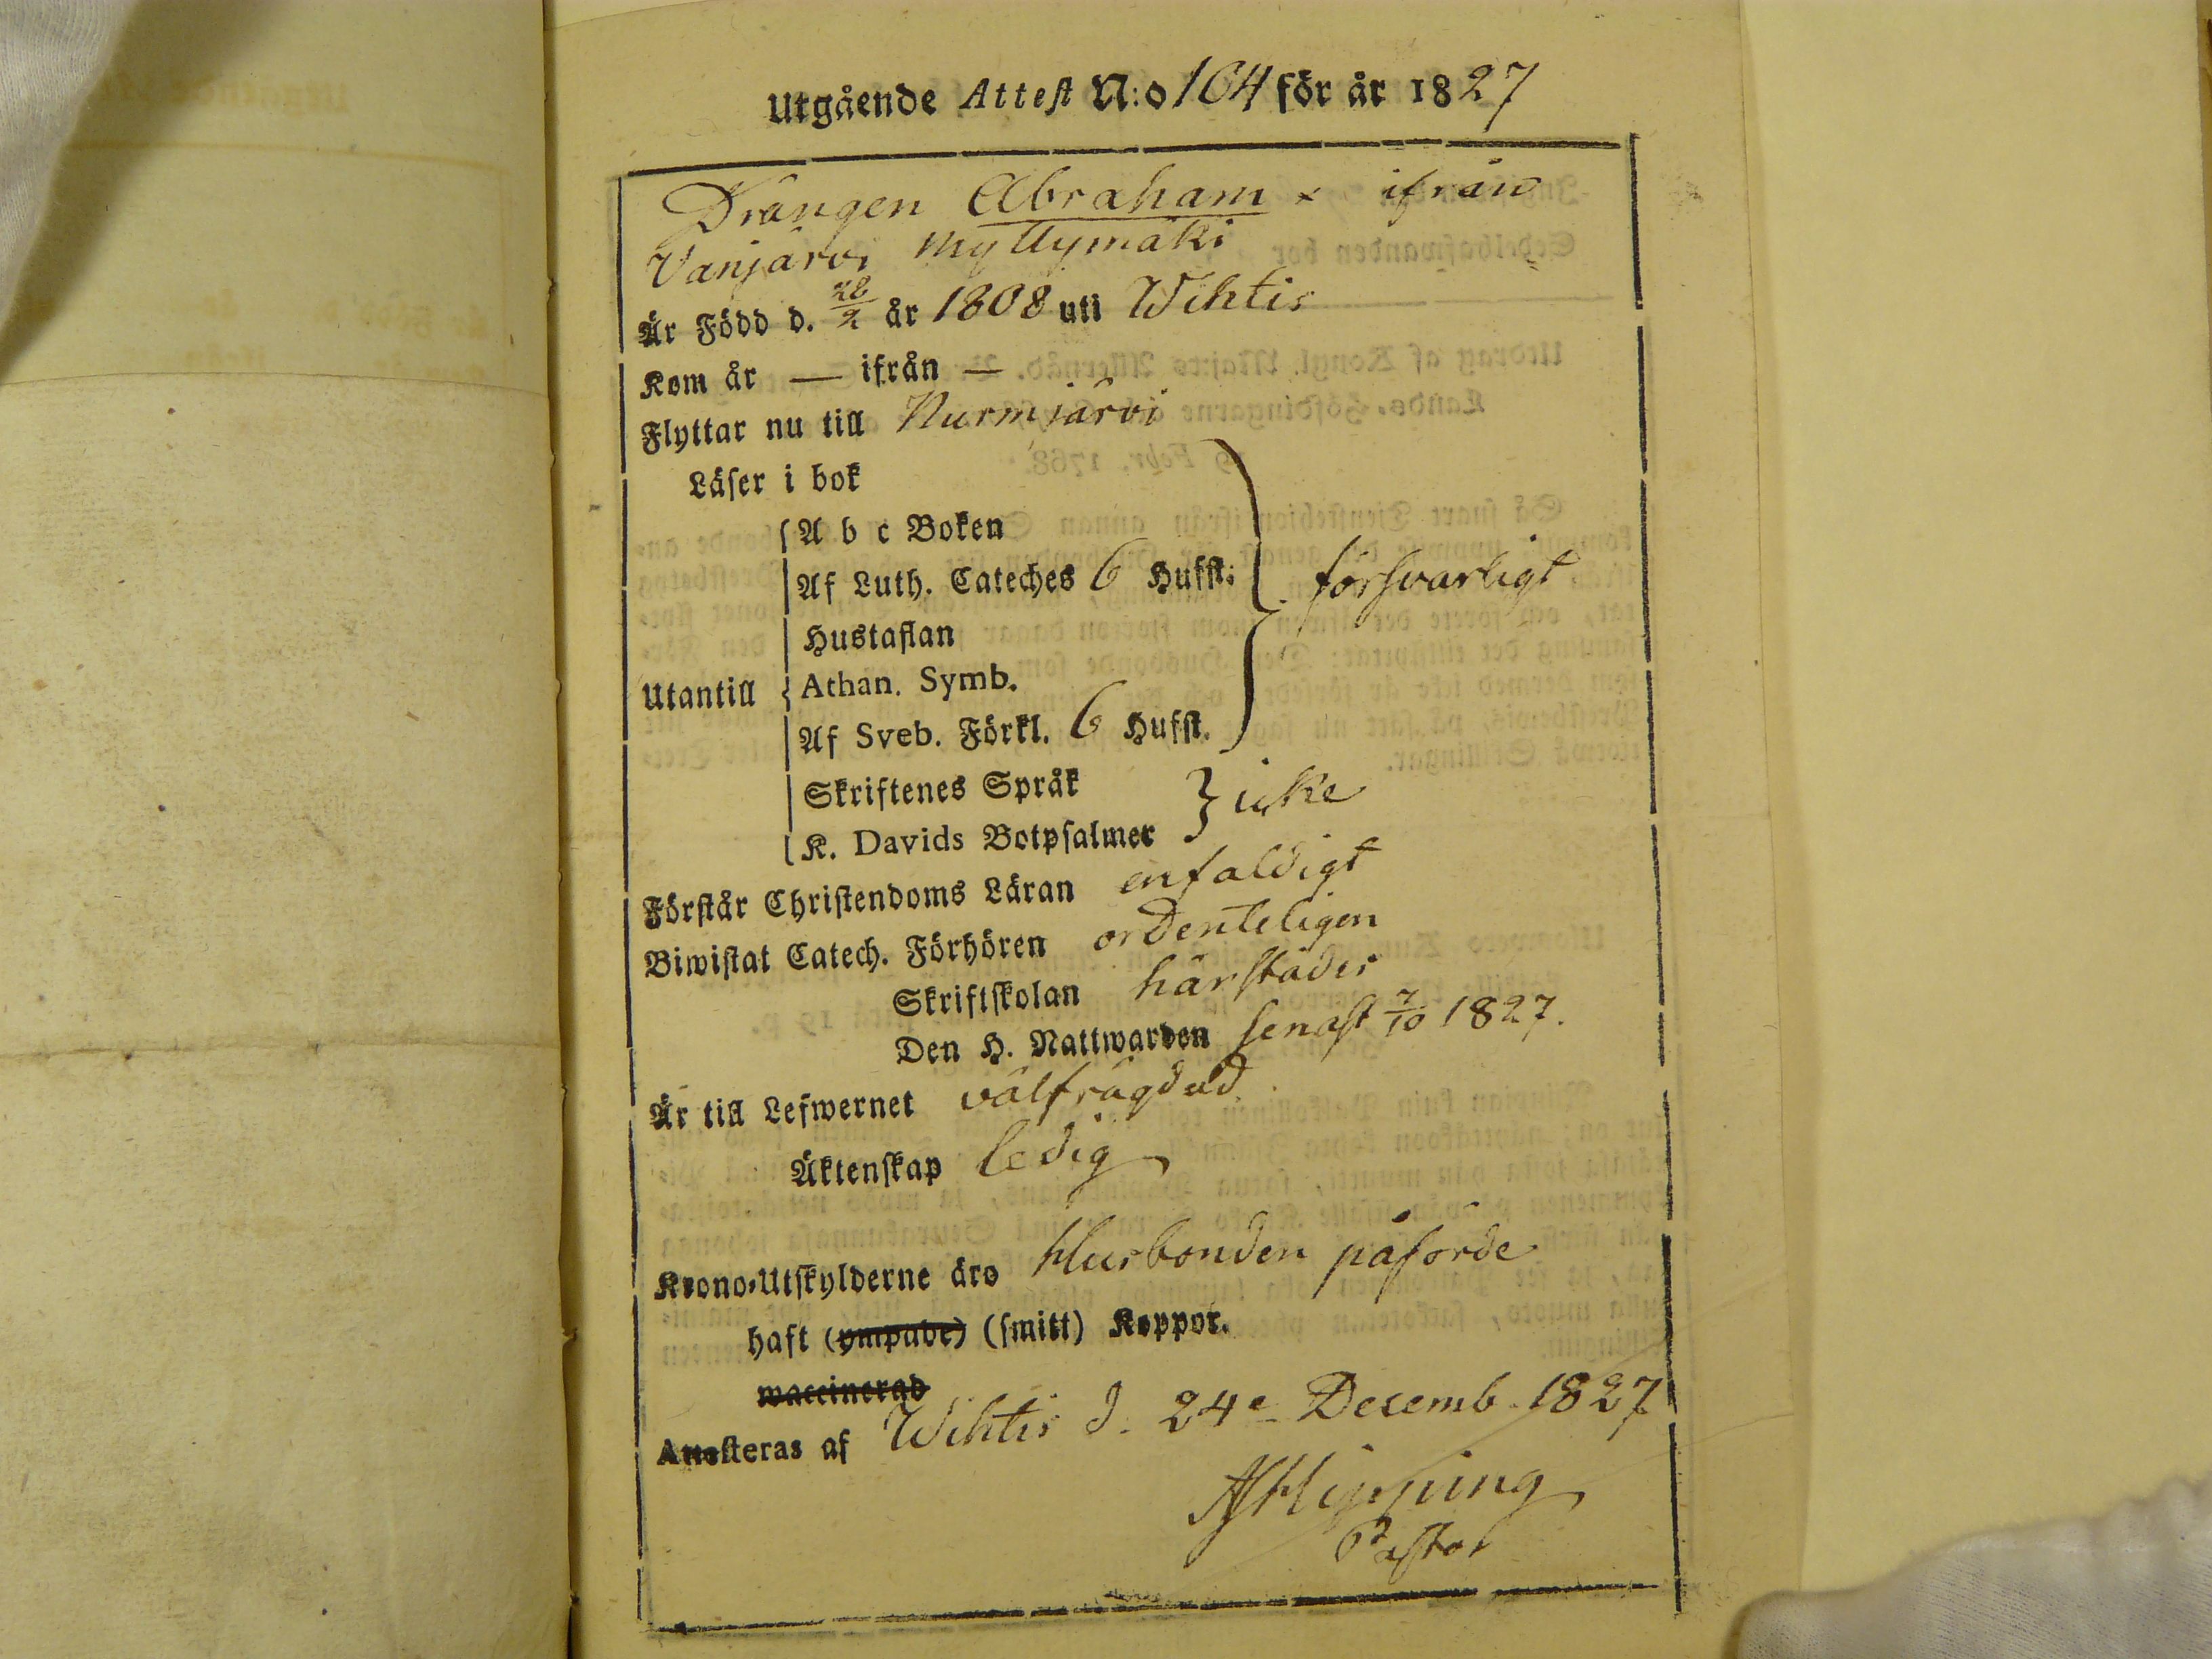 Utgående Attest N:o 104 för år 1827
Drängen Abraham × ifrån
Vanjärvi Myllymäki
Är Född d. 28/2 år 1808 uti Wihtis
Kom år — ifrån —
Flyttar nu till Nurmijärvi
Läser i bok
A b c Boken
Af Luth. Cateches 6 Hufst: försvarligt
Hustaflan
Utantill Athan. Symb.
Af Sveb. Förkl. 6 Hufst.
Skriftenes Språk
icke
K. Davids Botpsalmer
Förstår Christendoms Läran enfaldigt
Biwistat Catech. Förhören ordenteligen
Skriftskolan härstädes
Den H. Nattwarden senast 7/10 1827.
Är till Lefwernet välfrägdad
Äktenskap ledig
Krono-Utskylderne äro Husbonden påförde
haft (ympade) (smitt) Koppor.
waccinerad
Attesteras af Wihtis d. 24e Decemb. 1827
Hipping
Pastor